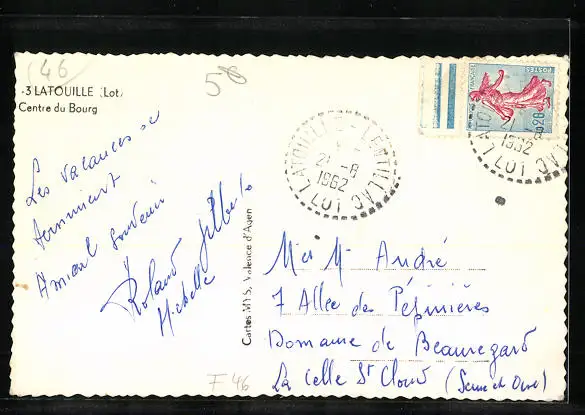 46
50
-3 LATOUILLE (Lot)
Centre du Bourg
Les vacances se
terminent
Amical souvenir
Roland Gilberte
Michelle
F 46
Cartes MYS, Valence d'Agen
LATOUILLE-LENTILLAC
21 -8
1962
LOT
POSTES
0,20
21 -8
1962
LOT
Mes Mr André
7 Allée des Pépinières
Domaine de Beauregard
La Celle St Cloud (Seine et Oise)